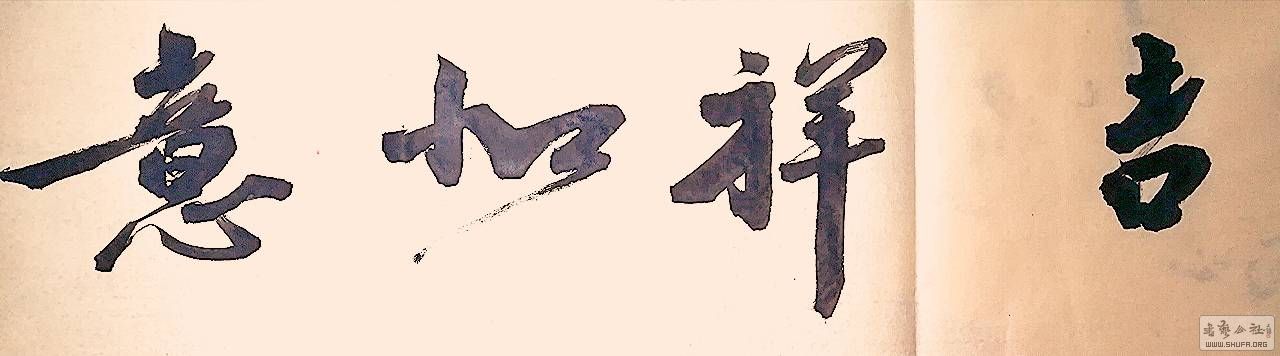 吉祥如意
书艺公社
WWW.SHUFA.ORG